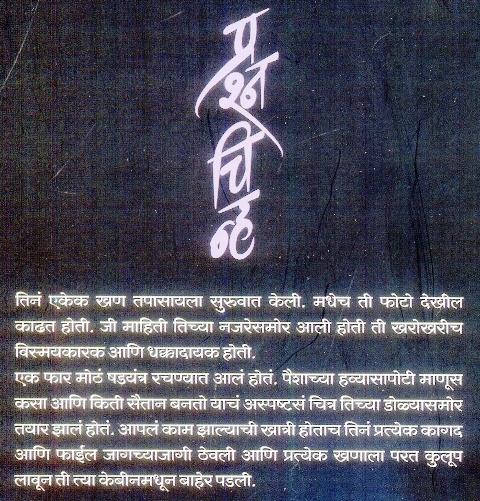 प्रश्न
चिन्ह
तिनं एकेक खण तपासायला सुरुवात केली. मधेच ती फोटो देखील
काढत होती. जी माहिती तिच्या नजरेसमोर आली होती ती खरोखरीच
विस्मयकारक आणि धक्कादायक होती.
एक फार मोठं षडयंत्र रचण्यात आलं होतं. पैशाच्या हव्यासापोटी माणूस
कसा आणि किती सैतान बनतो याचं अस्पष्टसं चित्र तिच्या डोळ्यासमोर
तयार झालं होतं. आपलं काम झाल्याची खात्री होताच तिनं प्रत्येक कागद
आणि फाईल जागच्याजागी ठेवली आणि प्रत्येक खणाला परत कुलूप
लावून ती त्या केबीनमधून बाहेर पडली.